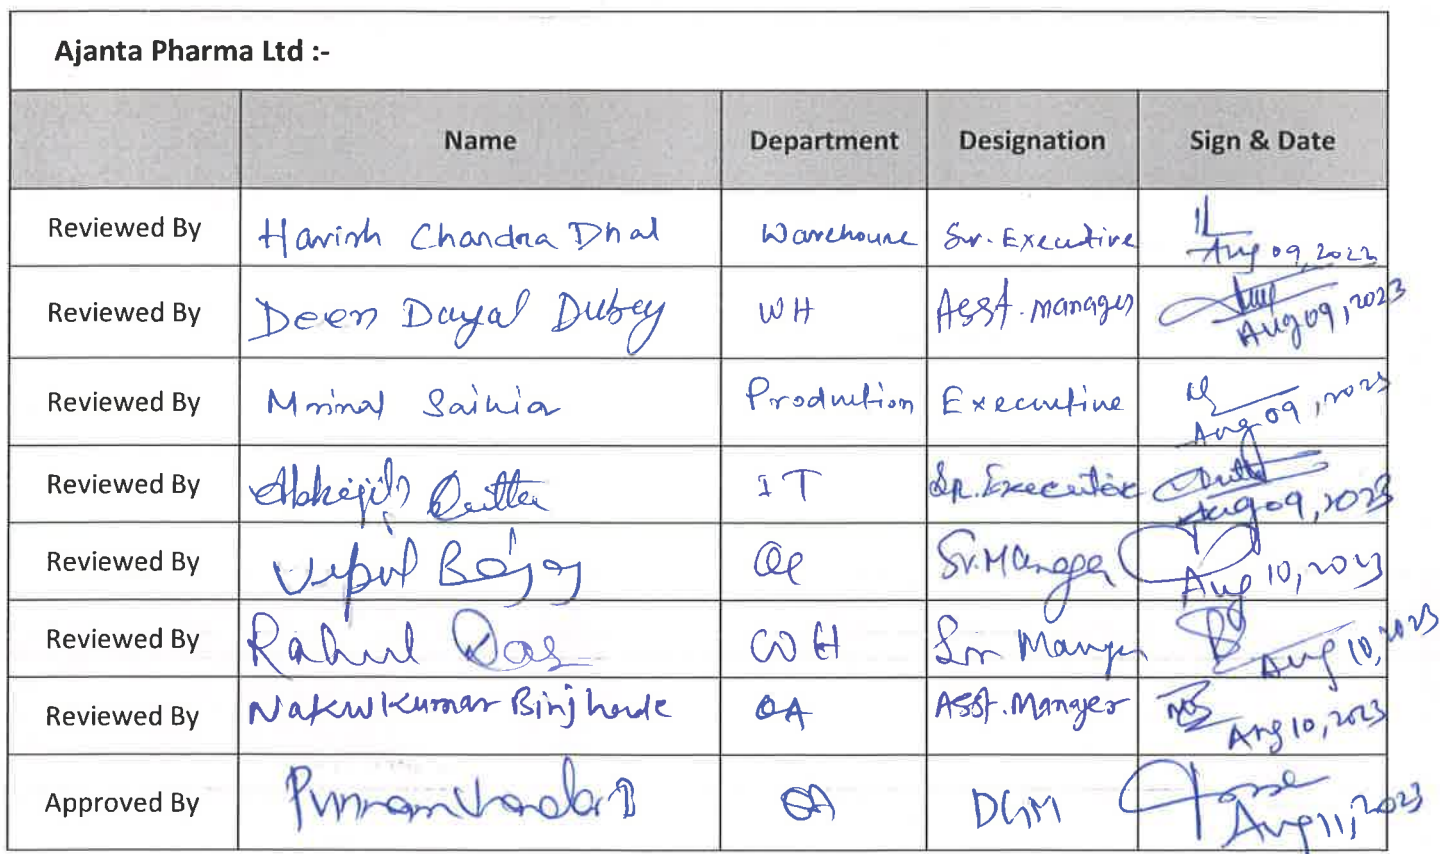 Ajanta Pharma Ltd :-
Name Department Designation Sign & Date
Reviewed By Harish Chandra Dhal Warehouse Sr. Executive Aug 09, 2023
Reviewed By Deen Dayal Dubey WH Asst. manager Aug 09, 2023
Reviewed By Mrinal Saikia Production Executive Aug 09, 2023
Reviewed By Abhijit Dutta IT Sr. Executive Dutta Aug 09, 2023
Reviewed By Vipul Bajaj Sr. Manager Aug 10, 2023
Reviewed By Rahul Das WH Sr Manager Aug 10, 2023
Reviewed By Nakul Kumar Binjhade QA Asst. Manager Aug 10, 2023
Approved By QA DGM Aug 11, 2023